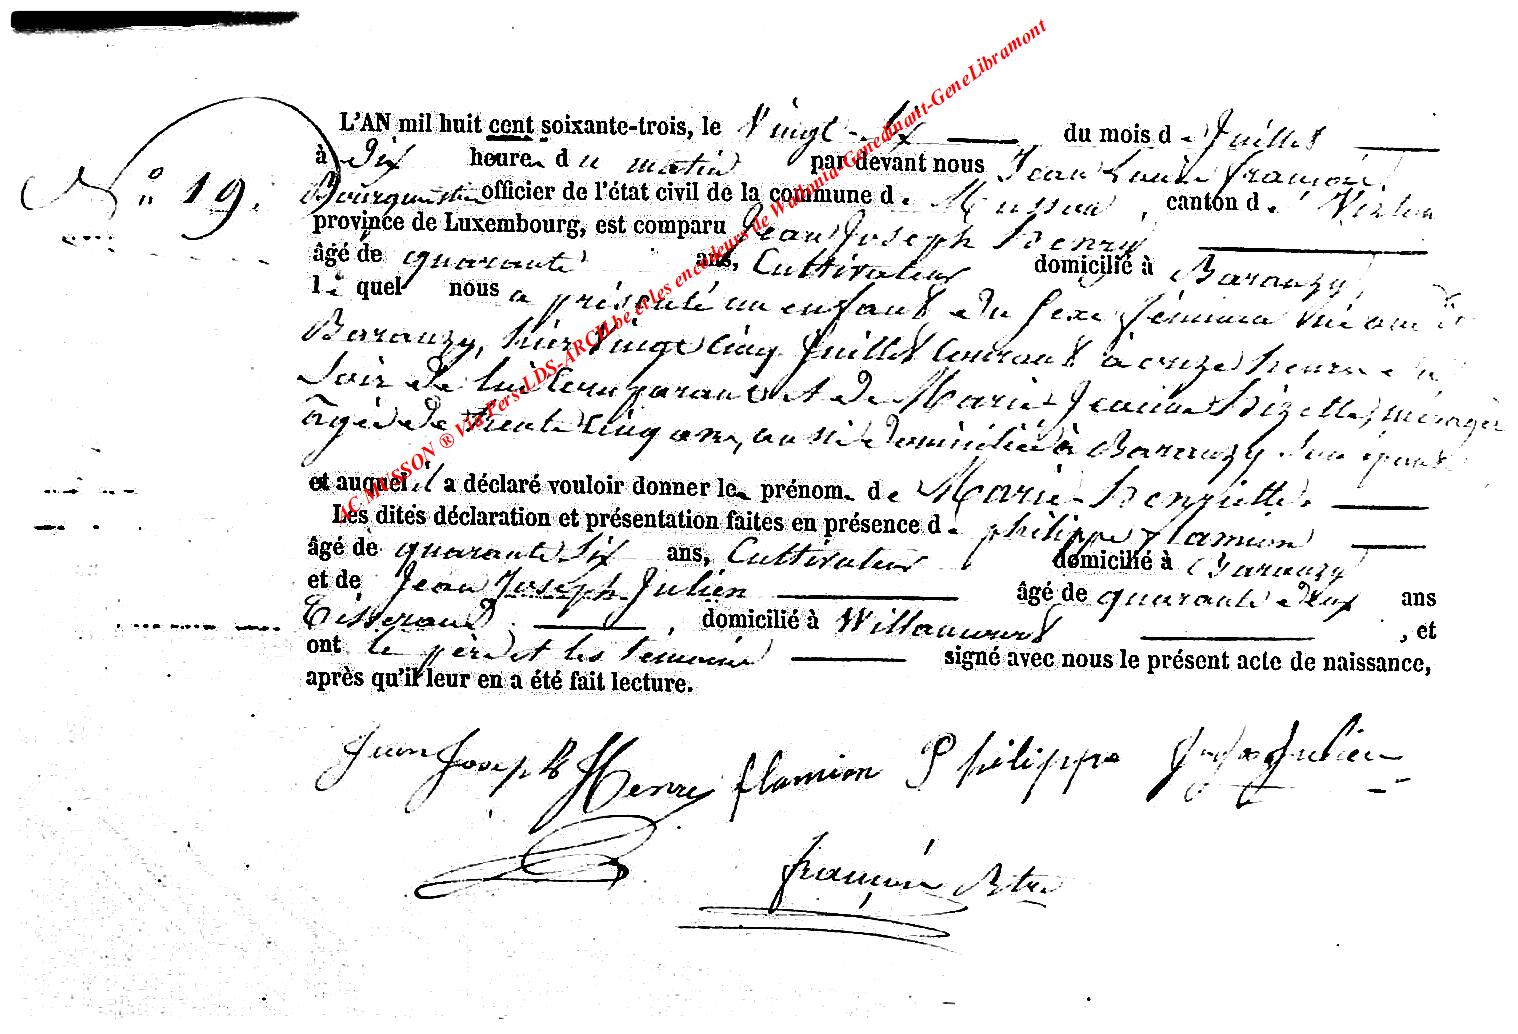 L'AN mil huit cent soixante-trois, le Vingt-six du mois de Juillet
à dix heures du matin par devant nous Jean Louis François,
N° 19. Bourgmestre officier de l'état civil de la commune de Musson, canton de Virton
province de Luxembourg, est comparu Jean Joseph Henry
âgé de quarante ans, Cultivateur domicilié à Baranzy,
le quel nous a présenté un enfant du sexe féminin né au dit
Baranzy, hier vingt cinq Juillet courant à onze heures du
soir de lui comparant et de Marie Jeanne Bizette, ménagère
âgée de trente cinq ans, aussi domiciliée à Baranzy son épouse
et auquel il a déclaré vouloir donner les prénoms de Marie Henriette.
Les dites déclaration et présentation faites en présence de philippe flamion
âgé de quarante six ans, Cultivateur domicilié à Baranzy
et de Jean Joseph Julien âgé de quarante deux ans
Tisserand domicilié à Willancourt, et
ont le père et les témoins signé avec nous le présent acte de naissance,
après qu'il leur en a été fait lecture.
Jean Joseph Henry flamion Philippe Julien
françois
AC MUSSON ® Via Pers-LDS-ARCH.be et les encodeurs de Wallonia-Genedinant-GeneLibramont